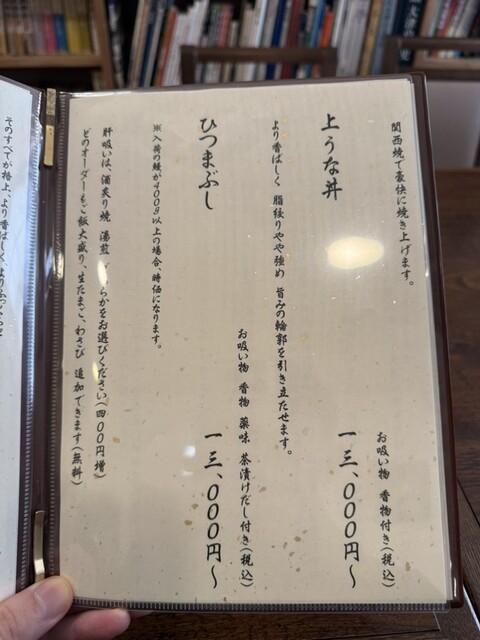 関西焼で豪快に焼き上げます。
上うな丼
お吸い物 香物付き(税込)
一三、〇〇〇円〜
より香ばしく 脂絞りやや強め 旨みの輪郭を引き立たせます。
ひつまぶし
お吸い物 香物 薬味 茶漬けだし付き(税込)
一三、〇〇〇円〜
※入荷の鰻が400g以上の場合、時価になります。
肝吸いは、酒炙り焼 湯煎 らかをお選びください(四〇〇円増)
どのオーダーもご飯大盛り、生たまご、わさび 追加できます(無料)
そのすべてが格上、より香ばしく、よりふっくらと